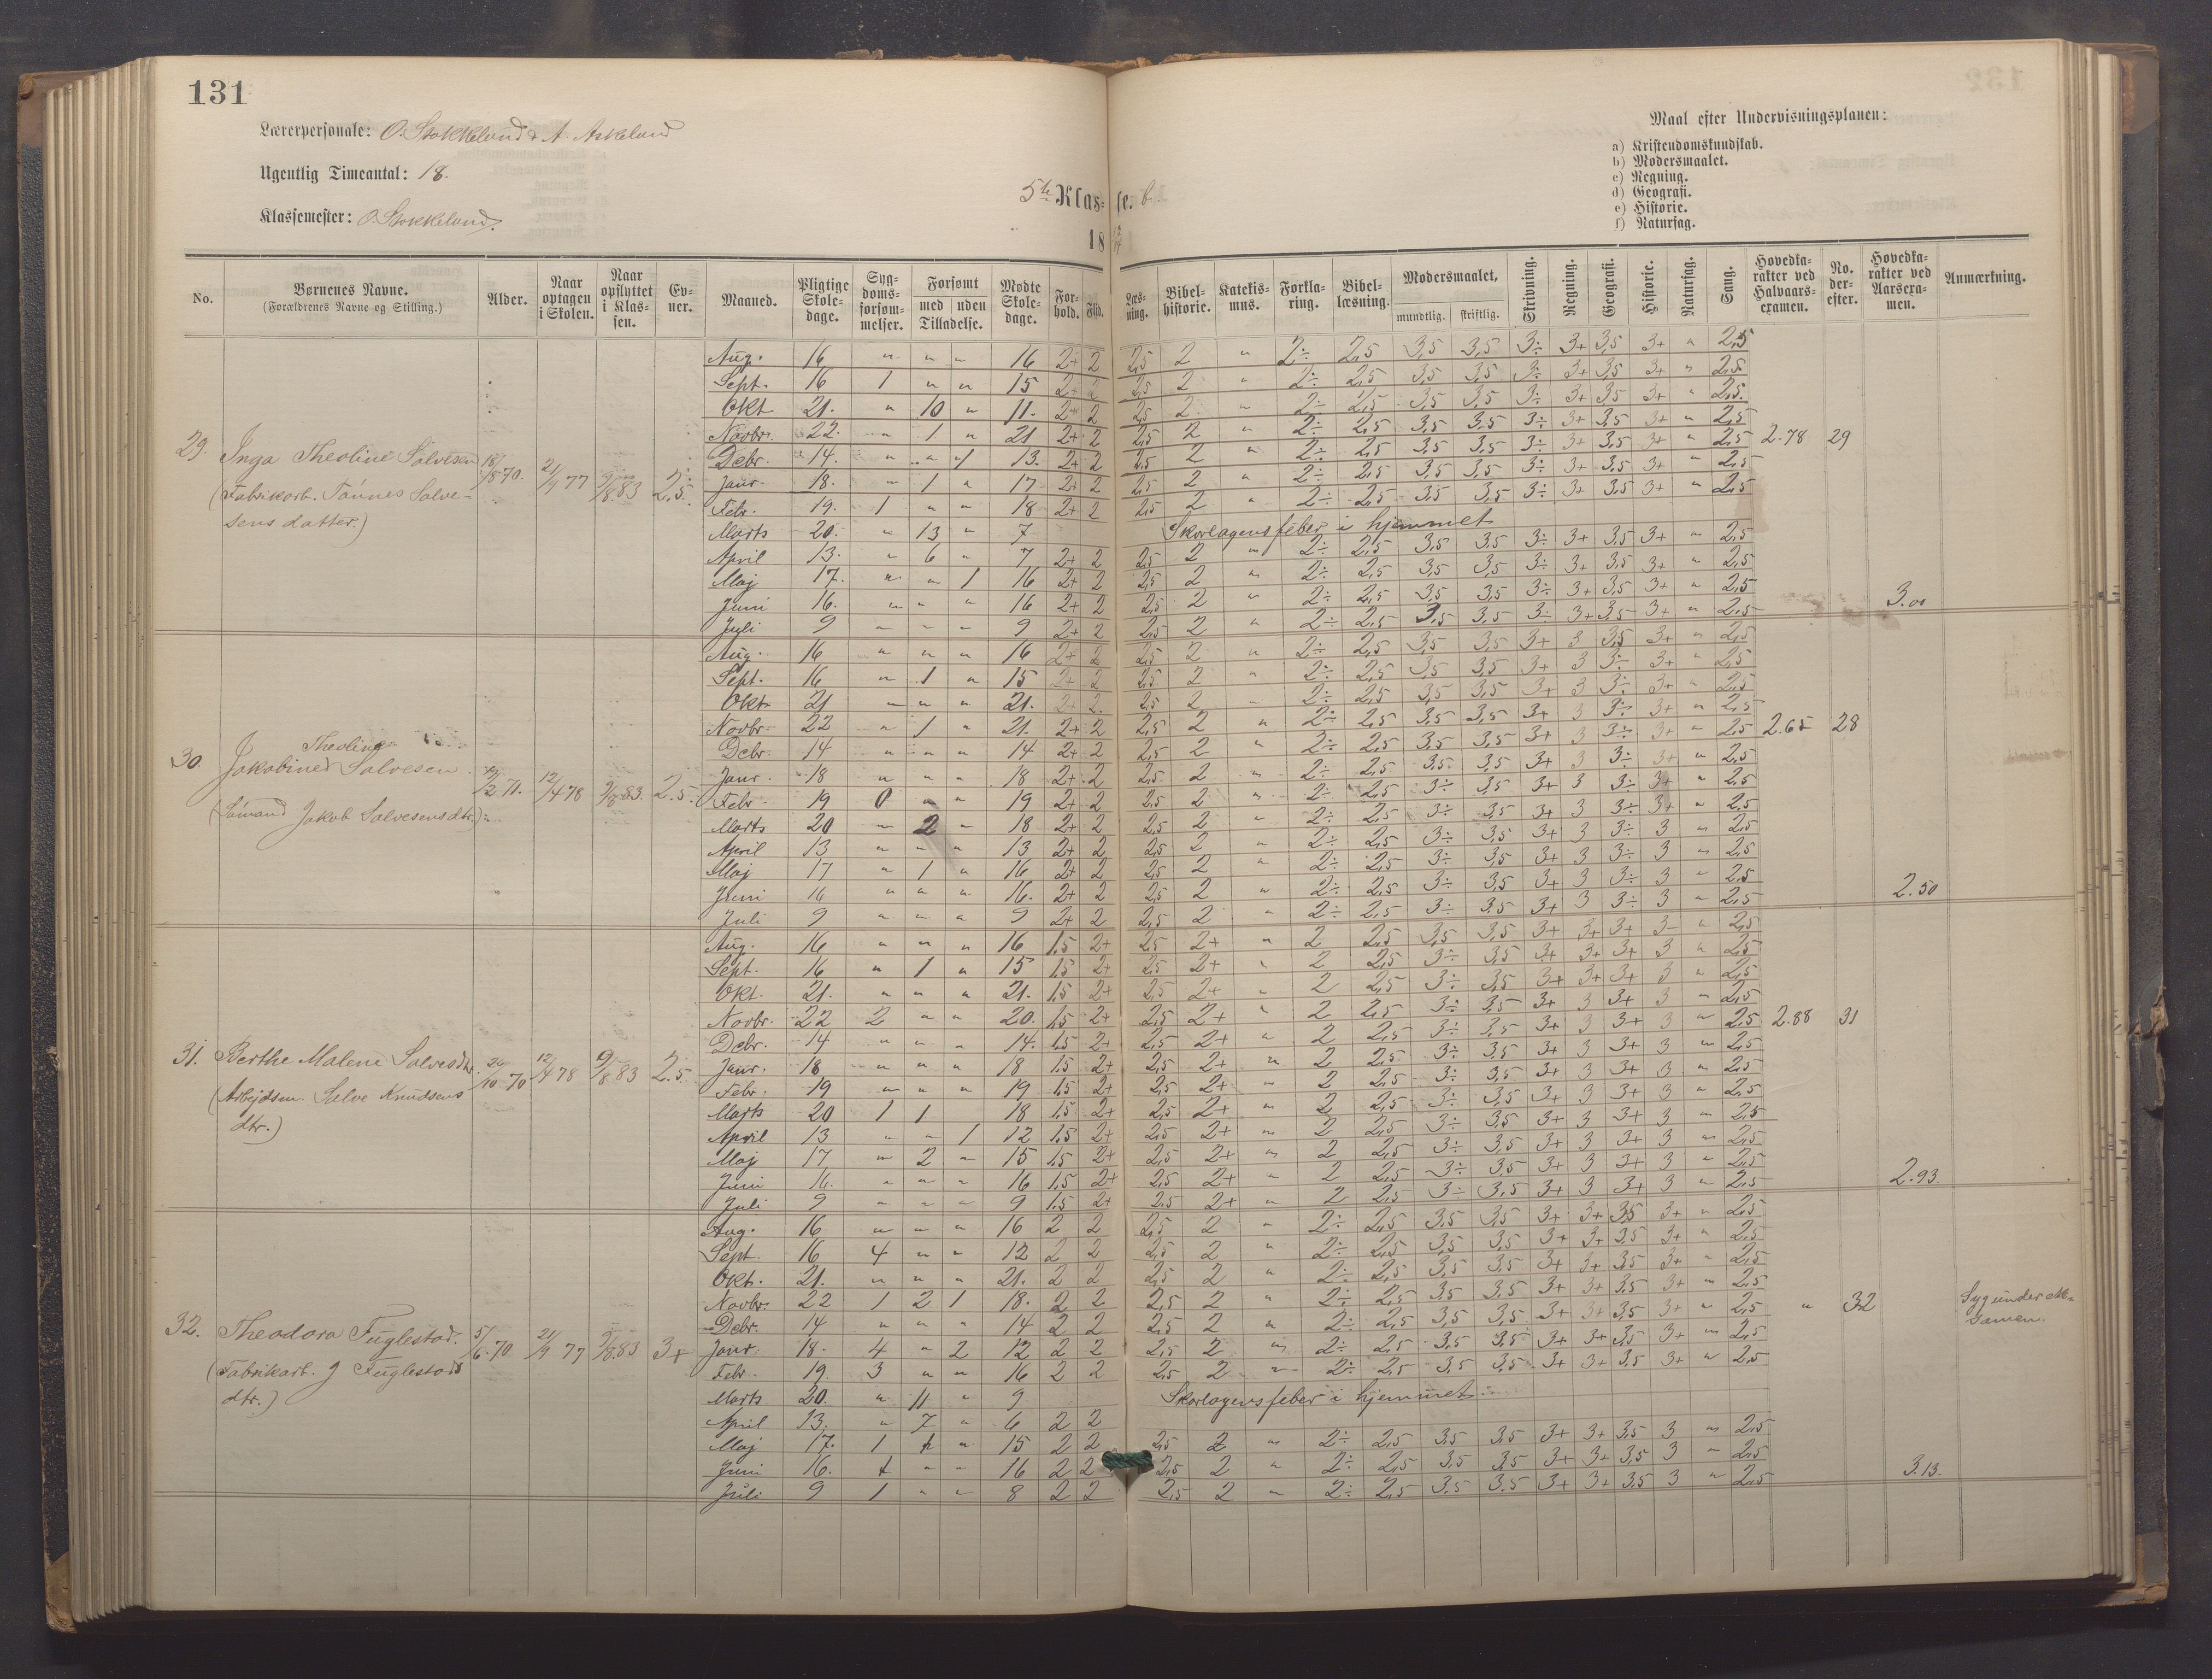 131
Lærerpersonale: O. Stokkeland & A. Askeland
Ugentlig Timeantal: 18.
Klassemester: O. Stokkeland.
5te Klas- se. b.
18 83/84
Maal efter Undervisningsplanen:
a) Kristendomskundskab.
b) Modersmaalet.
c) Regning.
d) Geografi.
e) Historie.
f) Naturfag.
No. Børnenes Navne. (Forældrenes Navne og Stilling.) Alder. Naar optagen i Skolen. Naar opflyttet i Klassen. Evner. Maaned. Pligtige Skoledage. Sygdomsforsømmelser. Forsømt med uden Tilladelse. Mødte Skoledage. Forhold. Flid. Læsning. Bibelhistorie. Katekismus. Forklaring. Bibellæsning. Modersmaalet, mundtlig. skriftlig. Skrivning. Regning. Geografi. Historie. Naturfag. Sang. Hovedkarakter ved Halvaarsexamen. No. derefter. Hovedkarakter ved Aarsexamen. Anmærkning.
29. Inga Theoline Salvesen (Fabrikarb. Tønnes Salvesens datter.) 18/8 70. 21/4 77 9/8 83 2,5. 2.78 29 3.00
Aug. 16 " " " 16 2+ 2 2,5 2 " 2÷ 2,5 3,5 3,5 3÷ 3+ 3,5 3+ " 2,5
Sept. 16 1 " " 15 2+ 2 2,5 2 " 2÷ 2,5 3,5 3,5 3÷ 3+ 3,5 3+ " 2,5
Okt 21. " 10 " 11. 2+ 2 2,5 2 " 2÷ 2,5 3,5 3,5 3÷ 3+ 3,5 3+ " 2,5
Novbr. 22. " 1 " 21 2+ 2 2,5 2 " 2÷ 2,5 3,5 3,5 3÷ 3+ 3,5 3+ " 2,5
Debr. 14. " " 1 13. 2+ 2 2,5 2 " 2÷ 2,5 3,5 3,5 3÷ 3+ 3,5 3+ " 2,5
Janr. 18. " 1 " 17 2+ 2 2,5 2 " 2÷ 2,5 3,5 3,5 3÷ 3+ 3,5 3+ " 2,5
Febr. 19. 1 " " 18 2+ 2 2,5 2 " 2÷ 2,5 3,5 3,5 3÷ 3+ 3,5 3+ " 2,5
Marts 20. " 13 " 7 Skarlagensfeber i hjemmet
April 13. " 6 " 7 2+ 2 2,5 2 " 2÷ 2,5 3,5 3,5 3÷ 3+ 3,5 3+ " 2,5
Maj 17. " " 1 16 2+ 2 2,5 2 " 2÷ 2,5 3,5 3,5 3÷ 3+ 3,5 3+ " 2,5
Juni 16. " " " 16 2+ 2 2,5 2 " 2÷ 2,5 3,5 3,5 3÷ 3+ 3,5 3+ " 2,5
Juli 9 " " " 9 2+ 2 2,5 2 " 2÷ 2,5 3,5 3,5 3÷ 3+ 3,5 3+ " 2,5
30. Jakobine Theolinea Salvesen. (Sømand Jakob Salvesens dtr.) 2 71. 12/4 78 9/8 83. 2.5. 2.65 28 2.50
Aug. 16 " " " 16 2+ 2 2,5 2 " 2÷ 2,5 3,5 3,5 3+ 3 3,5 3+ " 2,5
Sept. 16 " 1 " 15 2+ 2 2,5 2 " 2÷ 2,5 3,5 3,5 3+ 3 3÷ 3+ " 2,5
Okt. 21 " " " 21. 2+ 2 2,5 2 " 2÷ 2,5 3,5 3,5 3+ 3 3÷ 3+ " 2,5
Novbr. 22 " 1 " 21. 2+ 2 2,5 2 " 2÷ 2,5 3,5 3,5 3+ 3 3÷ 3+ " 2,5
Debr. 14 " " " 14 2+ 2 2,5 2 " 2÷ 2,5 3,5 3,5 3+ 3 3÷ 3+ " 2,5
Janr. 18 " " " 18 2+ 2 2,5 2 " 2÷ 2,5 3,5 3,5 3+ 3 3÷ 3+ " 2,5
Febr. 19 0 " " 19 2+ 2 2,5 2 " 2÷ 2,5 3÷ 3,5 3+ 3 3÷ 3+ " 2,5
Marts 20 " 2 " 18 2+ 2 2,5 2 " 2÷ 2,5 3÷ 3,5 3+ 3 3÷ 3+ " 2,5
April 13 " " " 13 2+ 2 2,5 2 " 2÷ 2,5 3÷ 3,5 3+ 3 3÷ 3 " 2,5
Maj 17 " 1 " 16 2+ 2 2,5 2 " 2÷ 2,5 3÷ 3,5 3+ 3 3÷ 3 " 2,5
Juni 16 " " " 16. 2+ 2 2,5 2 " 2÷ 2,5 3÷ 3,5 3+ 3 3÷ 3 " 2,5
Juli 9 " " " 9 2+ 2 2,5 2 " 2÷ 2,5 3÷ 3,5 3+ 3 3÷ 3 " 2,5
31. Berthe Malene Salvesdtr. (Arbejdsm. Salve Knudsens dtr.) 26/10 70 12/4 78 9/8 83 2.5. 2.88 31 2.93
Aug. 16 " " " 16 1,5 2+ 2,5 2+ " 2 2,5 3,5 3,5 3+ 3+ 3+ 3 " 2,5
Sept. 16 " 1 " 15 1,5 2+ 2,5 2+ " 2 2,5 3÷ 3,5 3+ 3+ 3+ 3 " 2,5
Okt. 21. " " " 21. 1,5 2+ 2,5 2+ " 2 2,5 3÷ 3,5 3+ 3+ 3+ 3 " 2,5
Novbr. 22 2 " " 20. 1,5 2+ 2,5 2+ " 2 2,5 3÷ 3,5 3+ 3 3+ 3 " 2,5
Debr. 14 " " " 14. 1,5 2+ 2,5 2+ " 2 2,5 3÷ 3,5 3+ 3 3+ 3 " 2,5
Janr. 18 " " " 18 1,5 2+ 2,5 2+ " 2 2,5 3÷ 3,5 3+ 3 3+ 3 " 2,5
Febr. 19 " " " 19 1,5 2+ 2,5 2+ " 2 2,5 3÷ 3,5 3+ 3 3+ 3 " 2,5
Marts 20 1 1 18 1,5 2+ 2,5 2+ " 2 2,5 3÷ 3,5 3+ 3 3+ 3 " 2,5
April 13 " " 1 12 1,5 2+ 2,5 2+ " 2 2,5 3÷ 3,5 3+ 3 3+ 3 " 2,5
Maj 17 " 2 " 15 1,5 2+ 2,5 2+ " 2 2,5 3÷ 3,5 3+ 3 3+ 3 " 2,5
Juni 16. " " " 16 1,5 2+ 2,5 2+ " 2 2,5 3÷ 3,5 3+ 3 3+ 3 " 2,5
Juli 9 " " " 9 1,5 2+ 2,5 2+ " 2 2,5 3÷ 3,5 3+ 3 3+ 3 " 2,5
32. Theodora Fuglestad. (Fabrikarb. J Fuglestads dtr.) 5/6 70 21/4 77 9/8 83 3+ " 32 3.13. Syg under eksamen.
Aug. 16 " " " 16 2 2 2,5 2 " 2÷ 2,5 3,5 3,5 3+ 3+ 3,5 3+ " 2,5
Sept. 16 4 " " 12 2 2 2,5 2 " 2÷ 2,5 3,5 3,5 3+ 3+ 3,5 3+ " 2,5
Okt. 21. " " " 21. 2 2 2,5 2 " 2÷ 2,5 3,5 3,5 3+ 3+ 3,5 3+ " 2,5
Novbr. 22 1 2 1 18. 2 2 2,5 2 " 2÷ 2,5 3,5 3,5 3+ 3+ 3,5 3+ " 2,5
Debr. 14 " " " 14 2 2 2,5 2 " 2÷ 2,5 3,5 3,5 3+ 3+ 3,5 3+ " 2,5
Janr. 18. 4 " 2 12 2 2 2,5 2 " 2÷ 2,5 3,5 3,5 3+ 3+ 3,5 3+ " 2,5
Febr. 19. 3 " " 16 2 2 2,5 2 " 2÷ 2,5 3,5 3,5 3+ 3+ 3,5 3+ " 2,5
Marts 20. " 11 " 9 Skarlagensfeber i hjemmet.
April 13. " 7 " 6 2 2
Maj 17. 1 " 15 2 2 2,5 2 " 2÷ 2,5 3,5 3,5 3+ 3+ 3,5 3 " 2,5
Juni 16. " " 16 2 2 2,5 2 " 2÷ 2,5 3,5 3,5 3+ 3+ 3,5 3 " 2,5
Juli 9 1 " " 8 2 2 2,5 2 " 2÷ 2,5 3,5 3,5 3+ 3+ 3,5 3 " 2,5